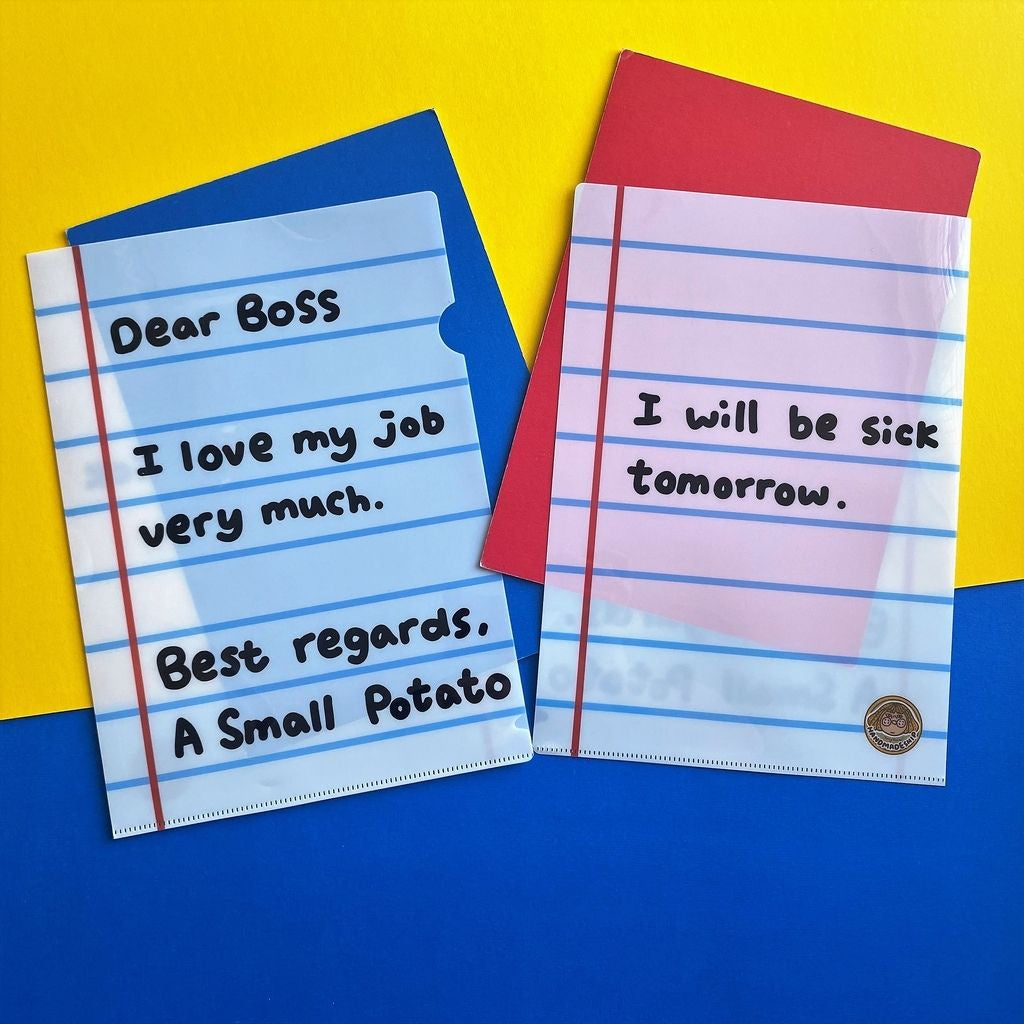 Dear Boss
I love my job
very much.
Best regards,
A Small Potato
I will be sick
tomorrow.